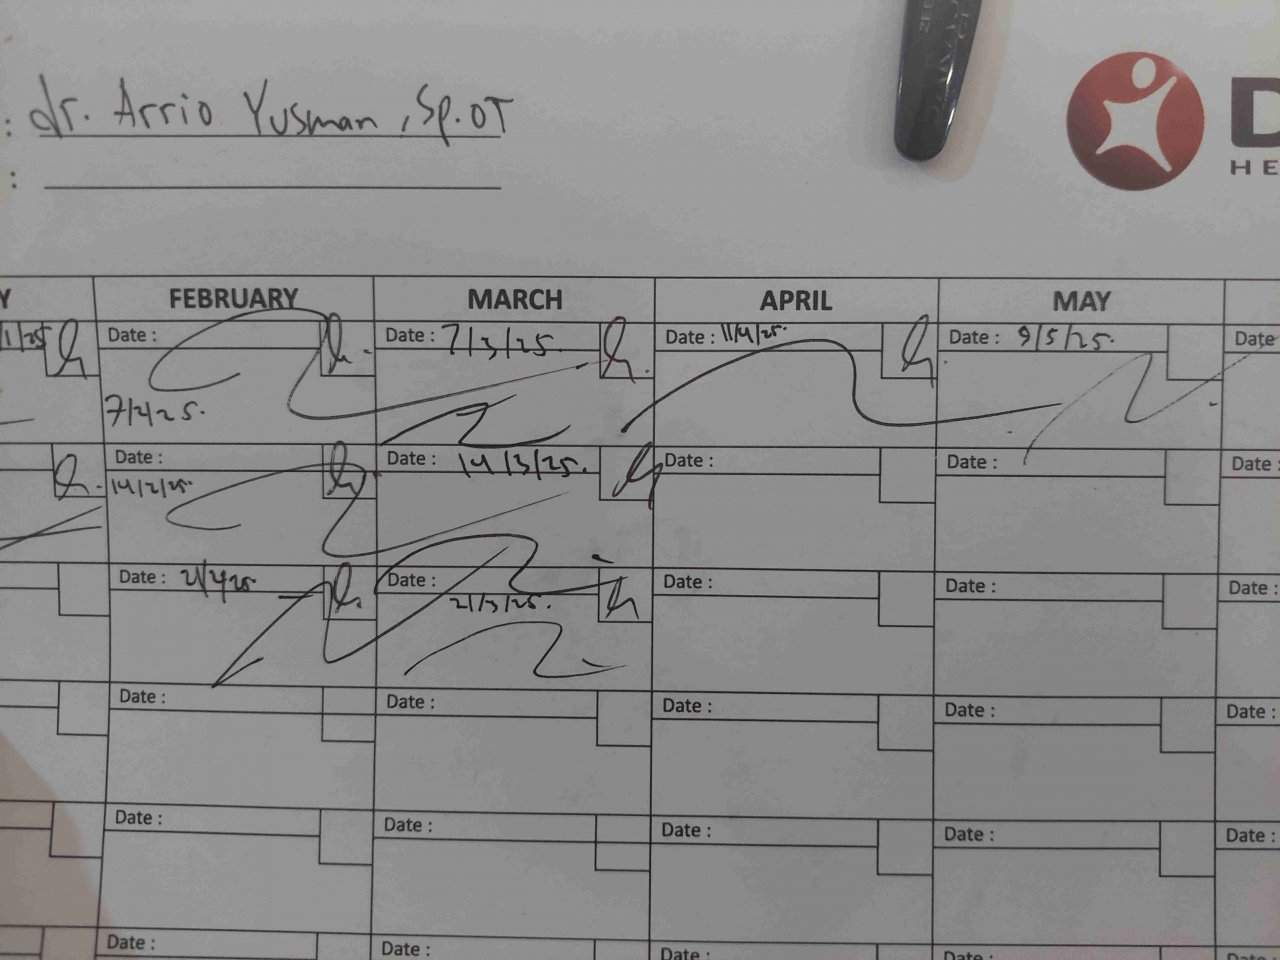 : dr. Arrio Yusman, Sp.OT
:
D
HE
Y FEBRUARY MARCH APRIL MAY
/1/25 Date : Date : 7/3/25. Date : 11/4/25. Date : 9/5/25. Date
7/2/25.
Date : Date : 14/3/25. Date : Date : Date :
14/2/25.
Date : 21/2/25 Date : Date : Date : Date :
21/3/25.
Date : Date : Date : Date : Date :
Date : Date : Date : Date : Date :
Date : Date : Date : Date : Date :